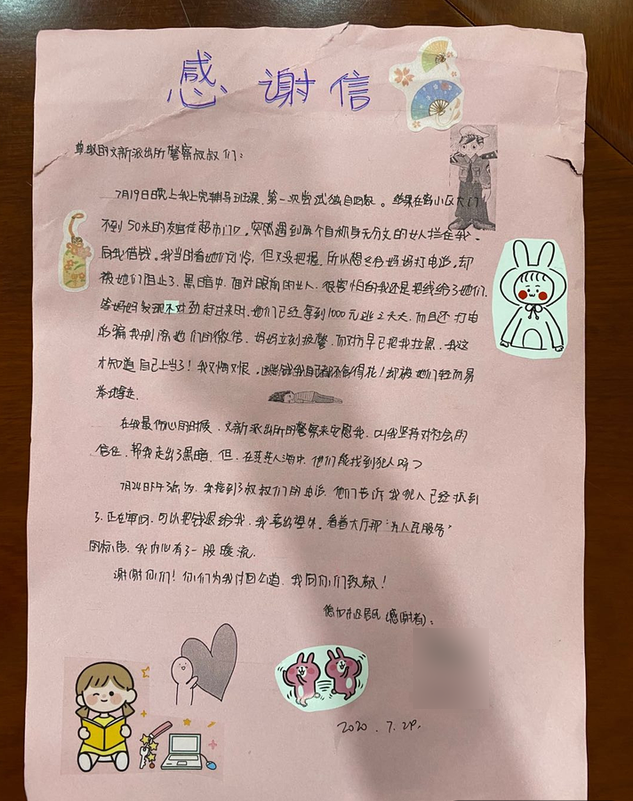 感谢信
尊敬的文新派出所警察叔叔们：
7月19日晚上我上完辅导班课，第一次尝试独自回家。结果在离小区大门
不到50米的友谊佳超市门口，突然遇到两个自称身无分文的女人拦住我，
向我借钱。我当时看她们可怜，但又没把握，所以想要给妈妈打电话，却
被她们阻止了。黑暗中，面对眼前的女人，很害怕的我还是把钱给了她们。
等妈妈发现不对劲赶过来时，她们已经拿到1000元逃之夭夭，而且还打电
话骗我删除她们的微信。妈妈立刻报警，而对方早已把我拉黑，我这
才知道自己上当了！我又悔又恨，这些钱我自己都不舍得花！却被她们轻而易
举地拿走。
在我最伤心的时候，文新派出所的警察来安慰我，叫我坚持对社会的
信任，帮我走出了黑暗。但，在茫茫人海中，他们能找到犯人吗？
7月24日下午3点，我接到了叔叔们的电话，他们告诉我犯人已经抓到
了，正在审问，可以把钱还给我，我喜出望外。看着大厅那“为人民服务”
的标语，我内心有了一股暖流。
谢谢你们！你们为我讨回公道，我向你们致敬！
居民（感谢者）：
2020.7.29.